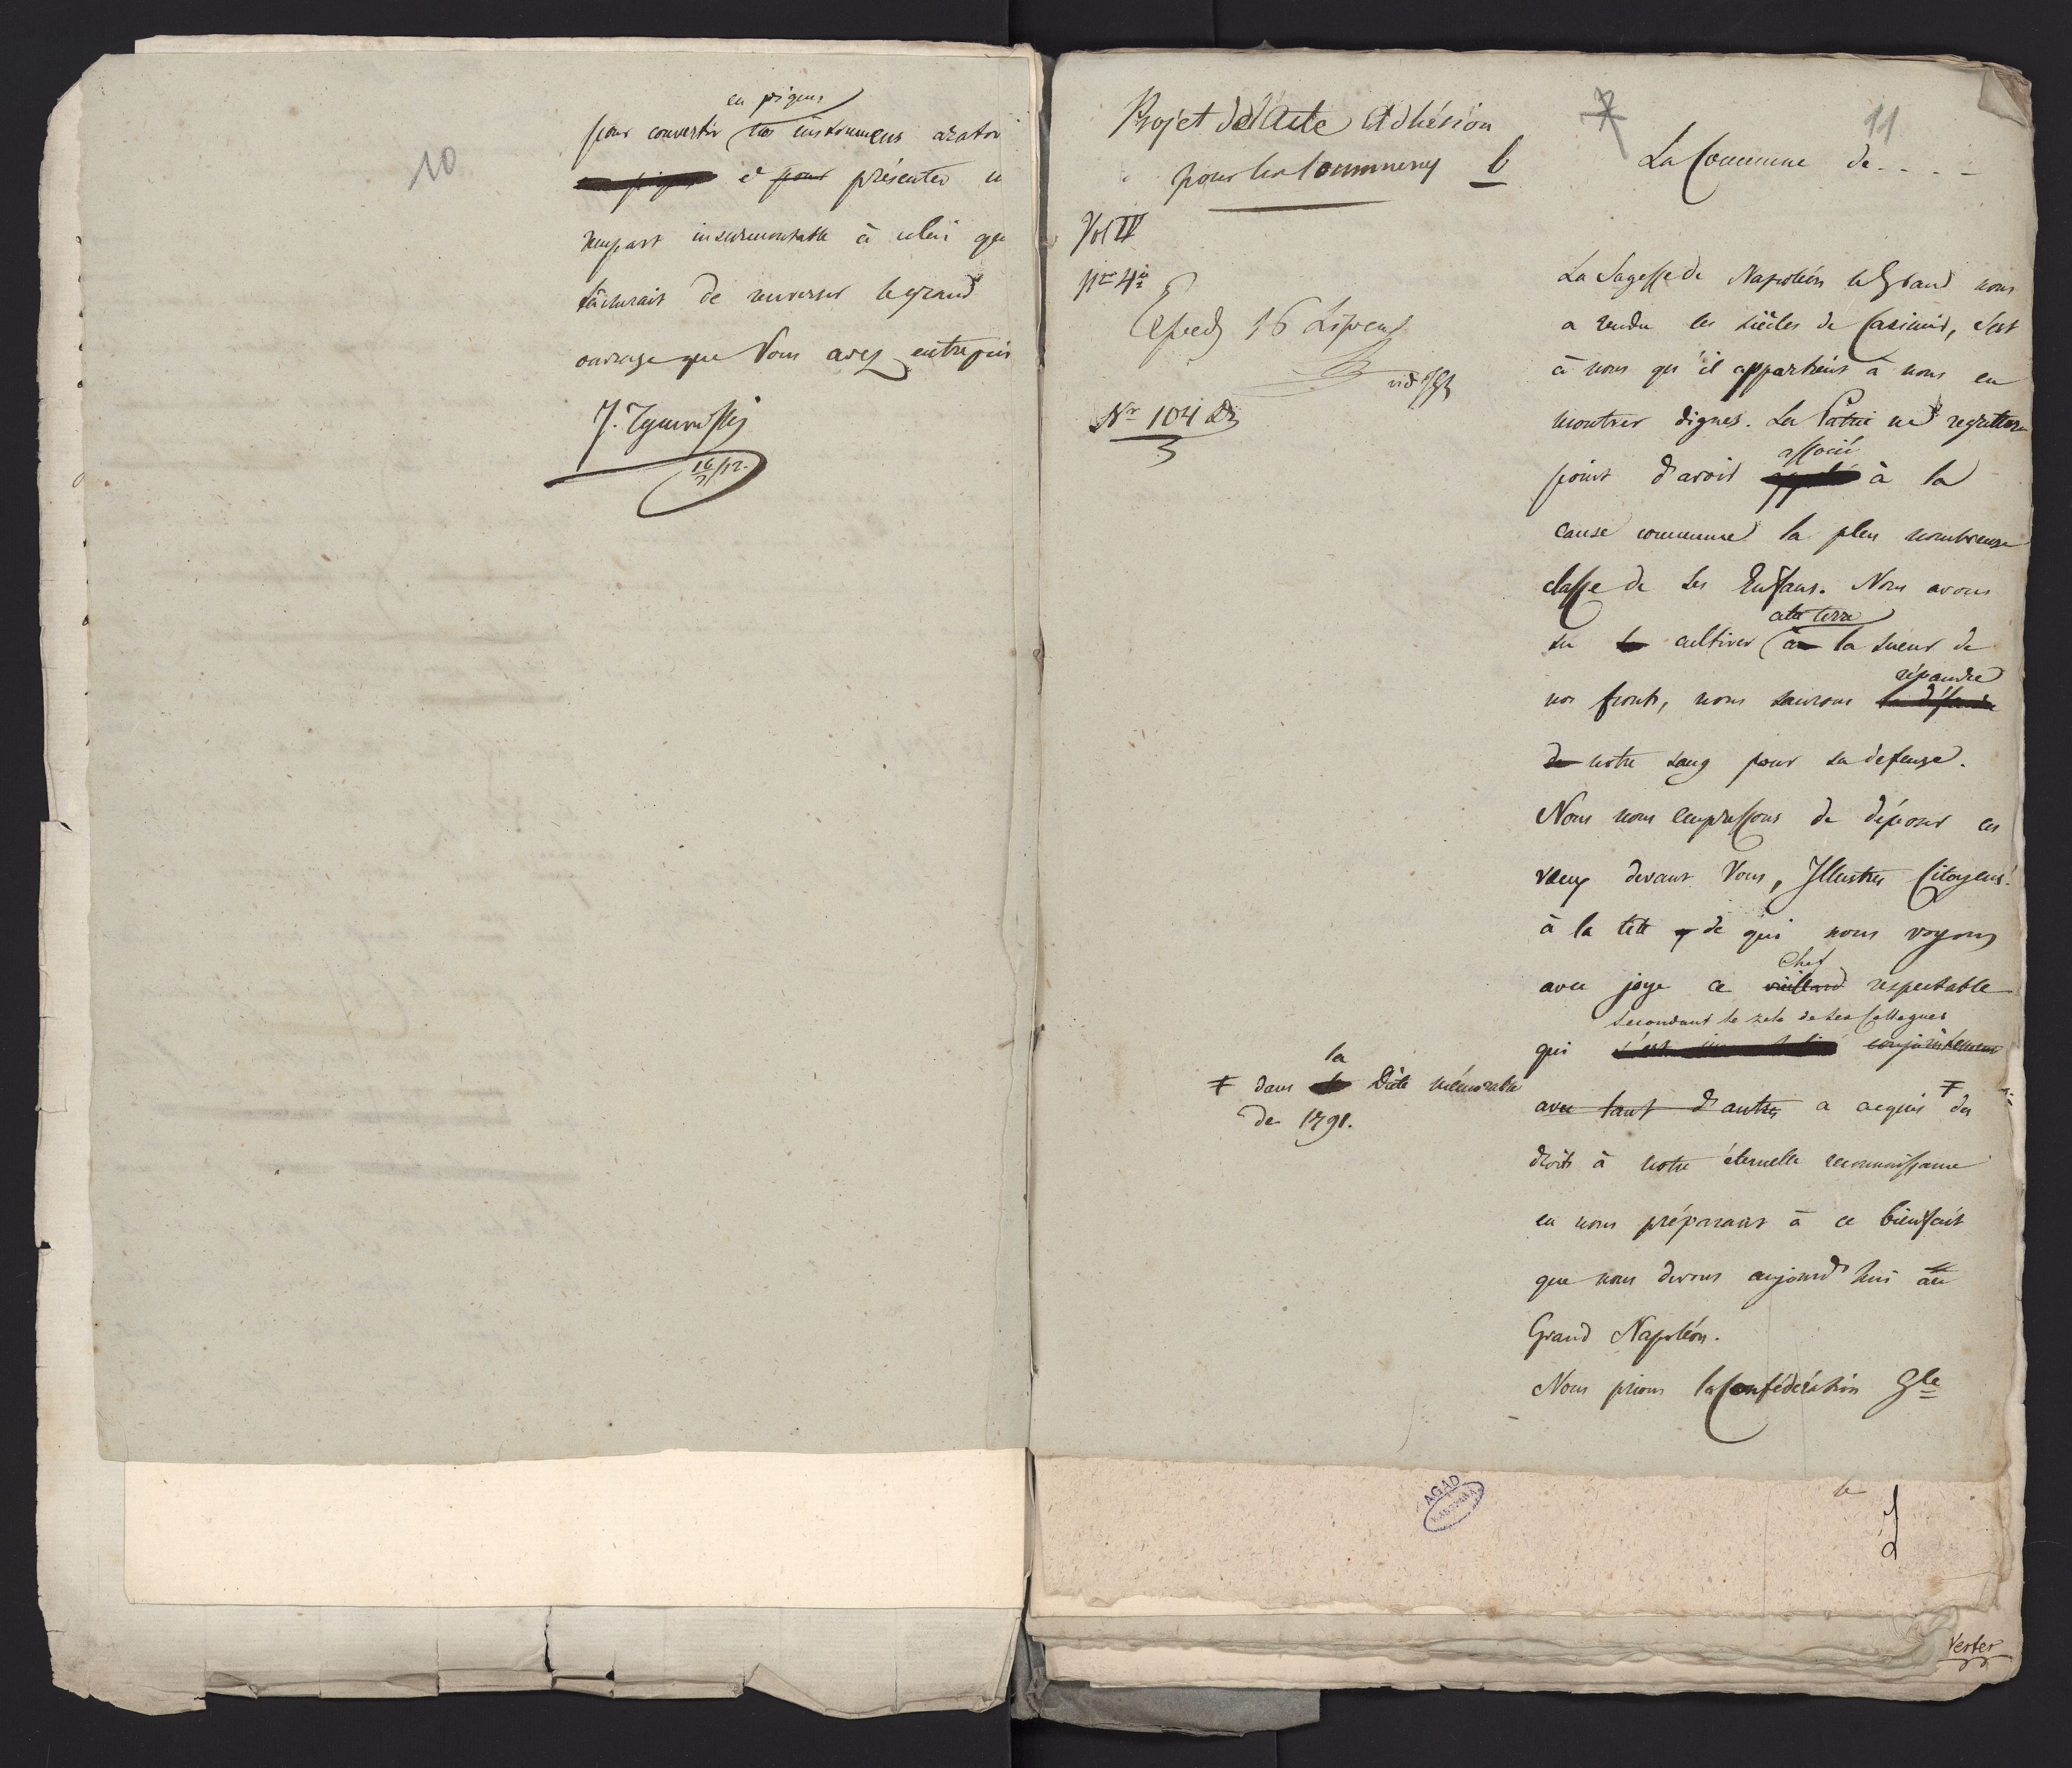 10
en piques
pour convertir nos instrumens arato
et pour présenter u
rempart insurmontable à celui qu
tâcherait de renverser le grand
ouvrage que Vous avez entrepris
16/7 12.
Projet de l'Acte Adhésion
pour les Communes b
Vol IV
Nro 4
Exped 16 Lipca
Nr 104
11
La Commune de . . . .
La Sagesse de Napoléon le Grand nous
a rendu les siècles de Casimir, c'est
à nous qu'il appartient à nous en
montrer dignes. La Patrie ne regrettera
associé
point d'avoir à la
cause commune la plus nombreuse
classe de ses Enfans. Nous avons
cette terre
su la cultiver à la sueur de
répandre
nos fronts, nous saurons la défendre
de notre sang pour sa défense.
Nous nous empressons de déposer ces
vœux devant Vous, Illustres Citoyens!
à la tête de qui nous voyons
Chef
avec joye ce vieillard respectable
secondant le zele de ses Collegues
qui conjointement
avec tant d'autres a acquis ‡ des
la
‡ dans Diète mémorable
de 1791.
droits à notre éternelle reconnaissance
en nous préparant à ce bienfait
que nous devons aujourd'hui au
Grand Napoléon.
Nous prions la Confédération Gle
AGAD
Verter